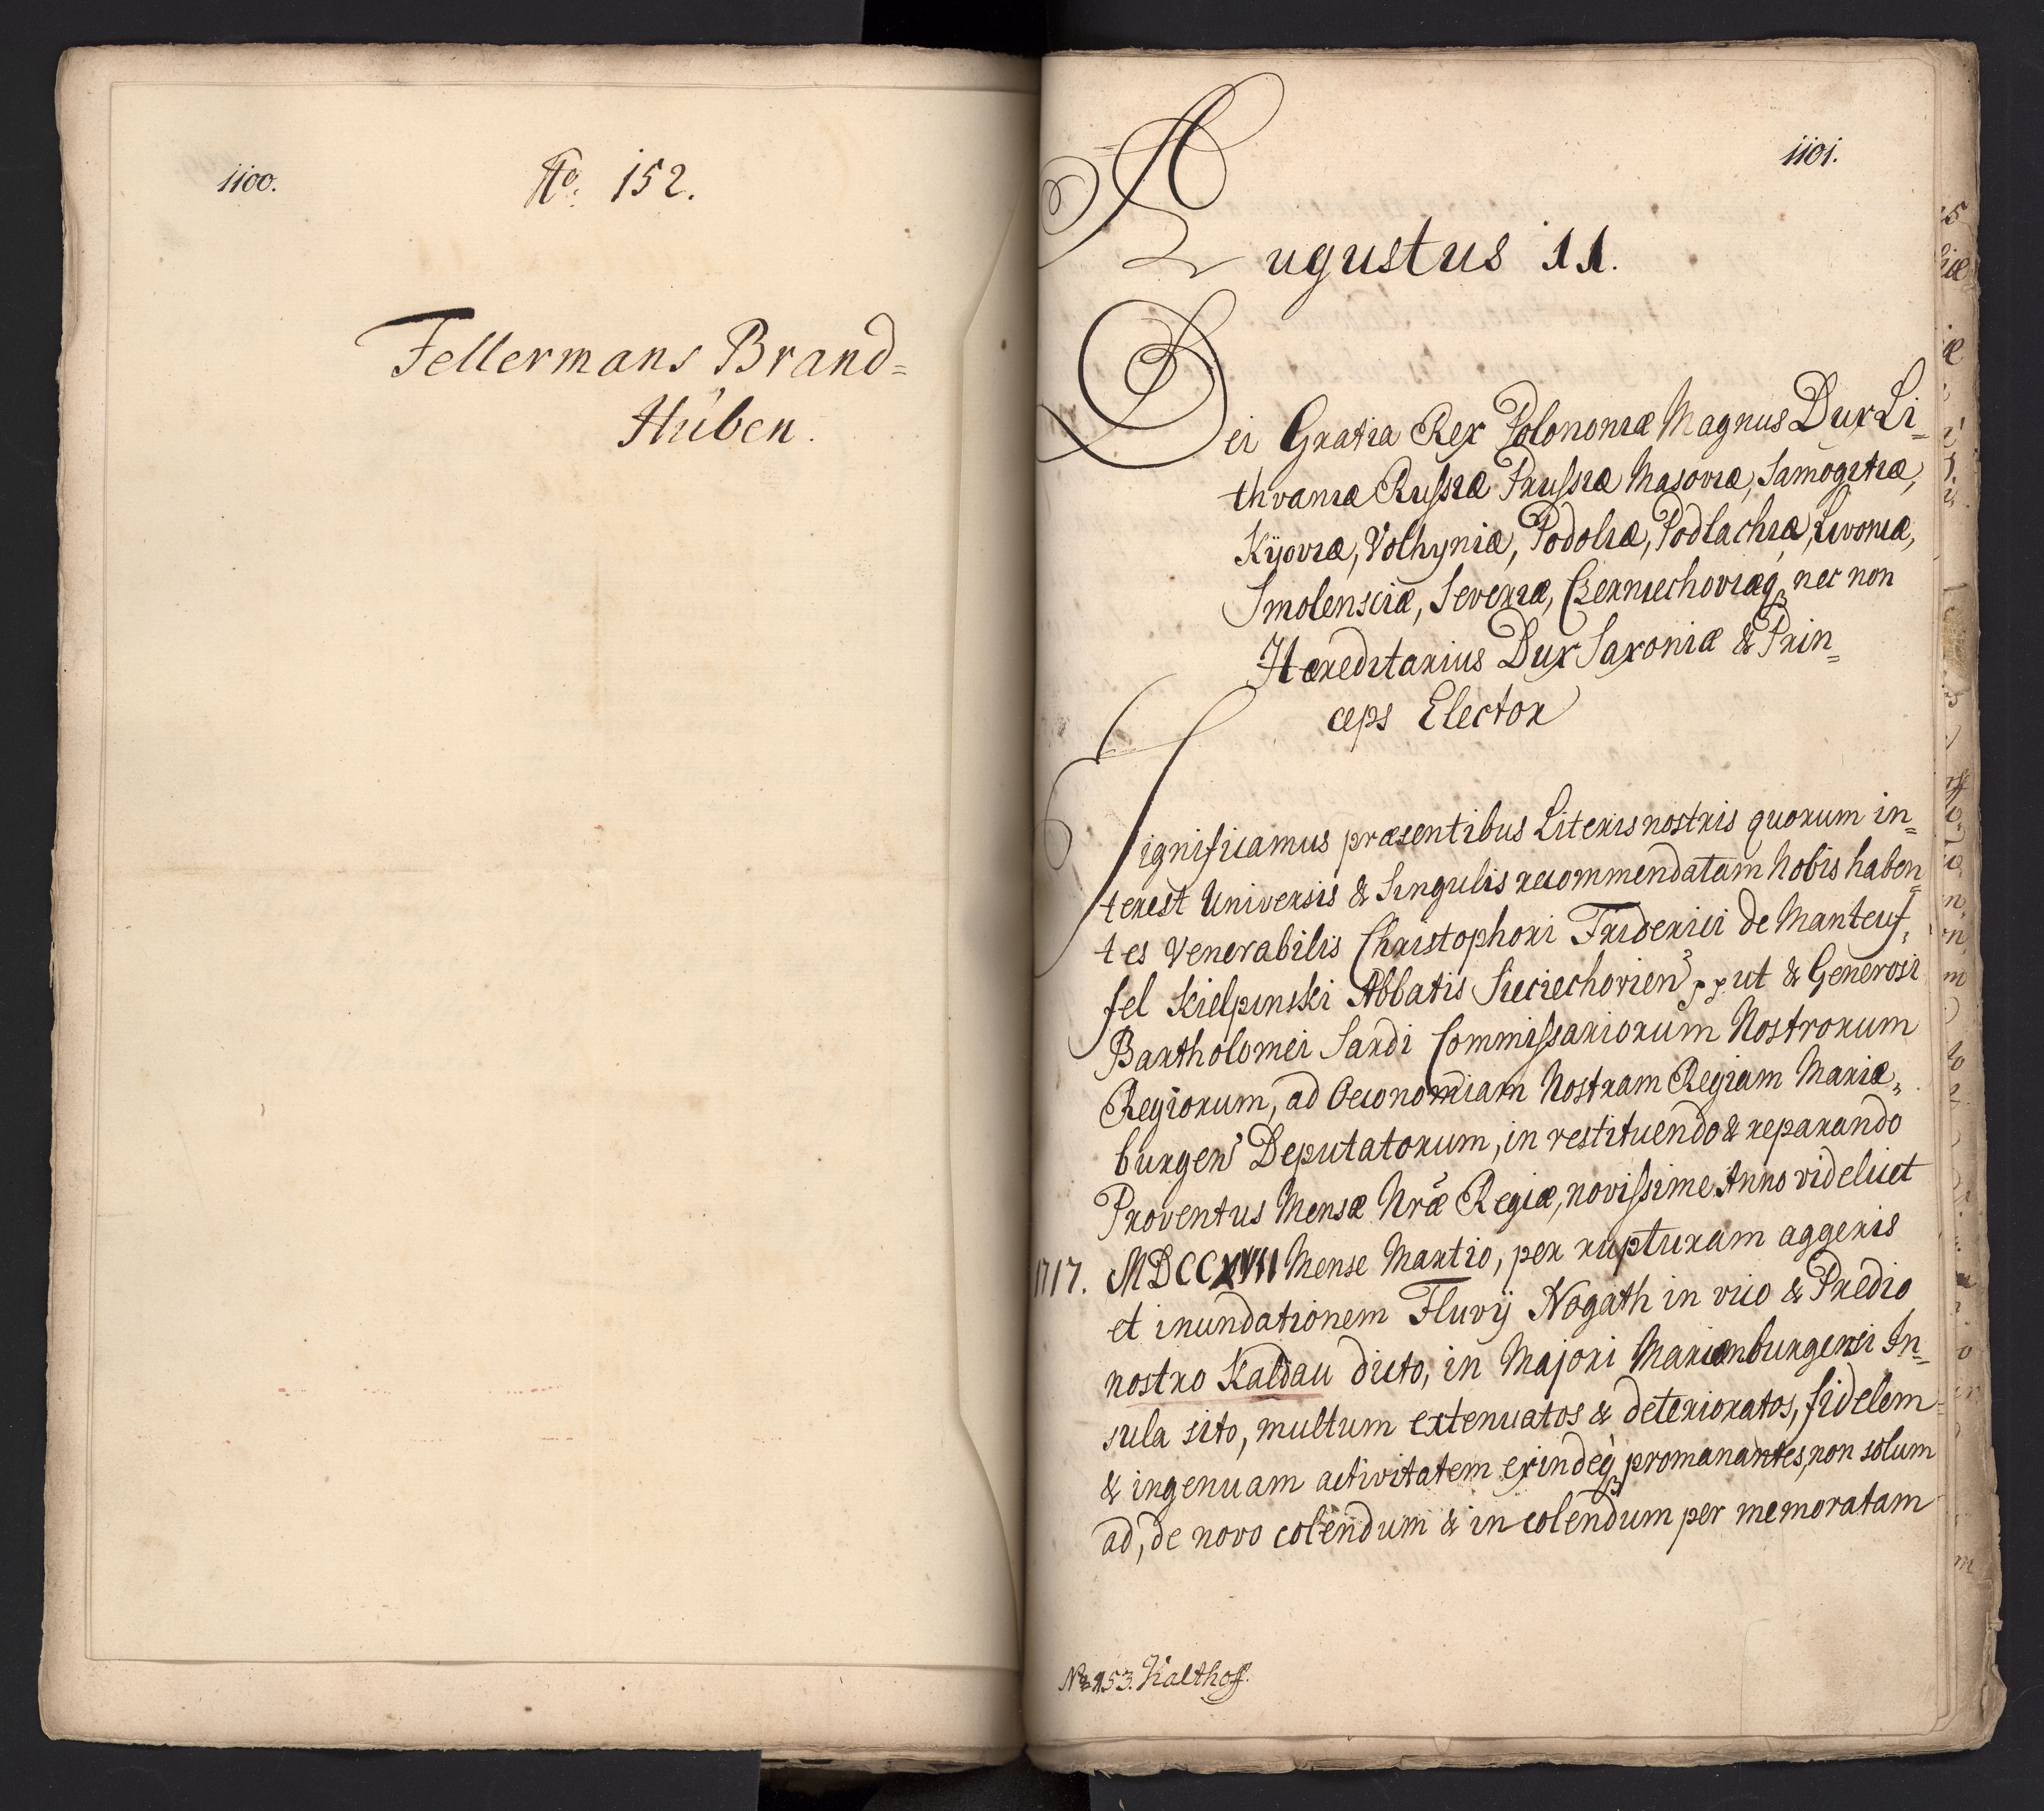 1100.
No. 152.
Fellermans Brand=
Hüben.
1101.
Augustus 11.
Dei Gratia Rex Polononiæ Magnus Dux Li=
thvaniæ Russiæ Prussiæ Masoviæ, Samogitiæ,
Kijoviæ, Volhyniæ, Podoliæ, Podlachiæ, Livoniæ,
Smolensciæ, Severiæ, Czerniechoviæq, nec non
Hæreditarius Dux Saxoniæ & Prin=
ceps Elector
Significamus præsentibus Literis nostris quorum in=
terest Universis & Singulis recommendatam Nobis haben=
tes Venerabilis Christophori Friderici de Manteuf=
fel Kielpinski Abbatis Sieciechovien ut & Generosi
Bartholomei Sardi Commissariorum Nostrorum
Regiorum, ad Oeconomiam Nostram Regiam Mariæ=
burgen Deputatorum, in restituendo & reparando
Proventus Mensæ Nræ Regiæ, novissime Anno videlicet
1717. MDCCXVII Mense Martio, per rupturam aggeris
et inundationem Fluvij Nogath in vico & Predio
nostro Kaldau dicto, in Majori Mariænburgensi In=
sula sito, multum extenuatos & deterioratos, fidelem
& ingenuam activitatem exindeq promanantes, non solum
ad, de novo colendum & incolendum per memoratam
No 153. Kalthoff.